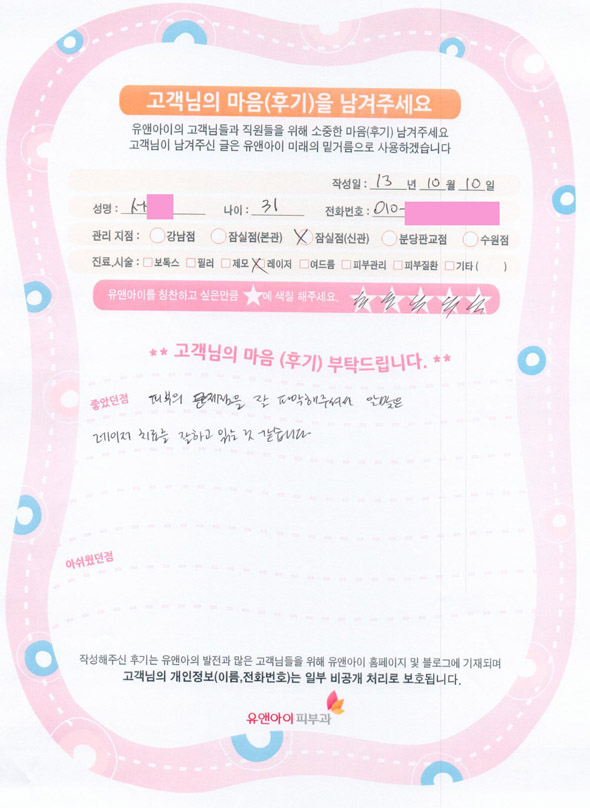 고객님의 마음(후기)을 남겨주세요
유앤아이의 고객님들과 직원들을 위해 소중한 마음(후기) 남겨주세요
고객님이 남겨주신 글은 유앤아이 미래의 밑거름으로 사용하겠습니다
작성일 : 13 년 10 월 10 일
성명 : 서 나이 : 31 전화번호 : 010-
관리 지점 : 강남점 잠실점(본관) 잠실점(신관) 분당판교점 수원점
진료,시술 : 보톡스 필러 제모 레이저 여드름 피부관리 피부질환 기타 ( )
유앤아이를 칭찬하고 싶은만큼 ★에 색칠 해주세요.
** 고객님의 마음 (후기) 부탁드립니다. **
좋았던점 피부의 문제점을 잘 파악해주셔서 알맞은
레이저 치료를 잘하고 있는 것 같습니다
아쉬웠던점
작성해주신 후기는 유앤아의 발전과 많은 고객님들을 위해 유앤아이 홈페이지 및 블로그에 기재되며
고객님의 개인정보(이름,전화번호)는 일부 비공개 처리로 보호됩니다.
유앤아이피부과